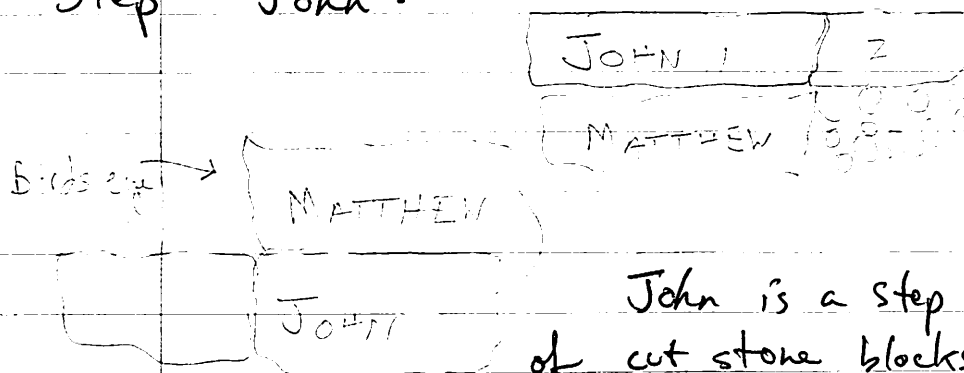 Step John.
JOHN 1 2
MATTHEW
Birds eye
MATTHEW
JOHN
John is a step
of cut stone blocks